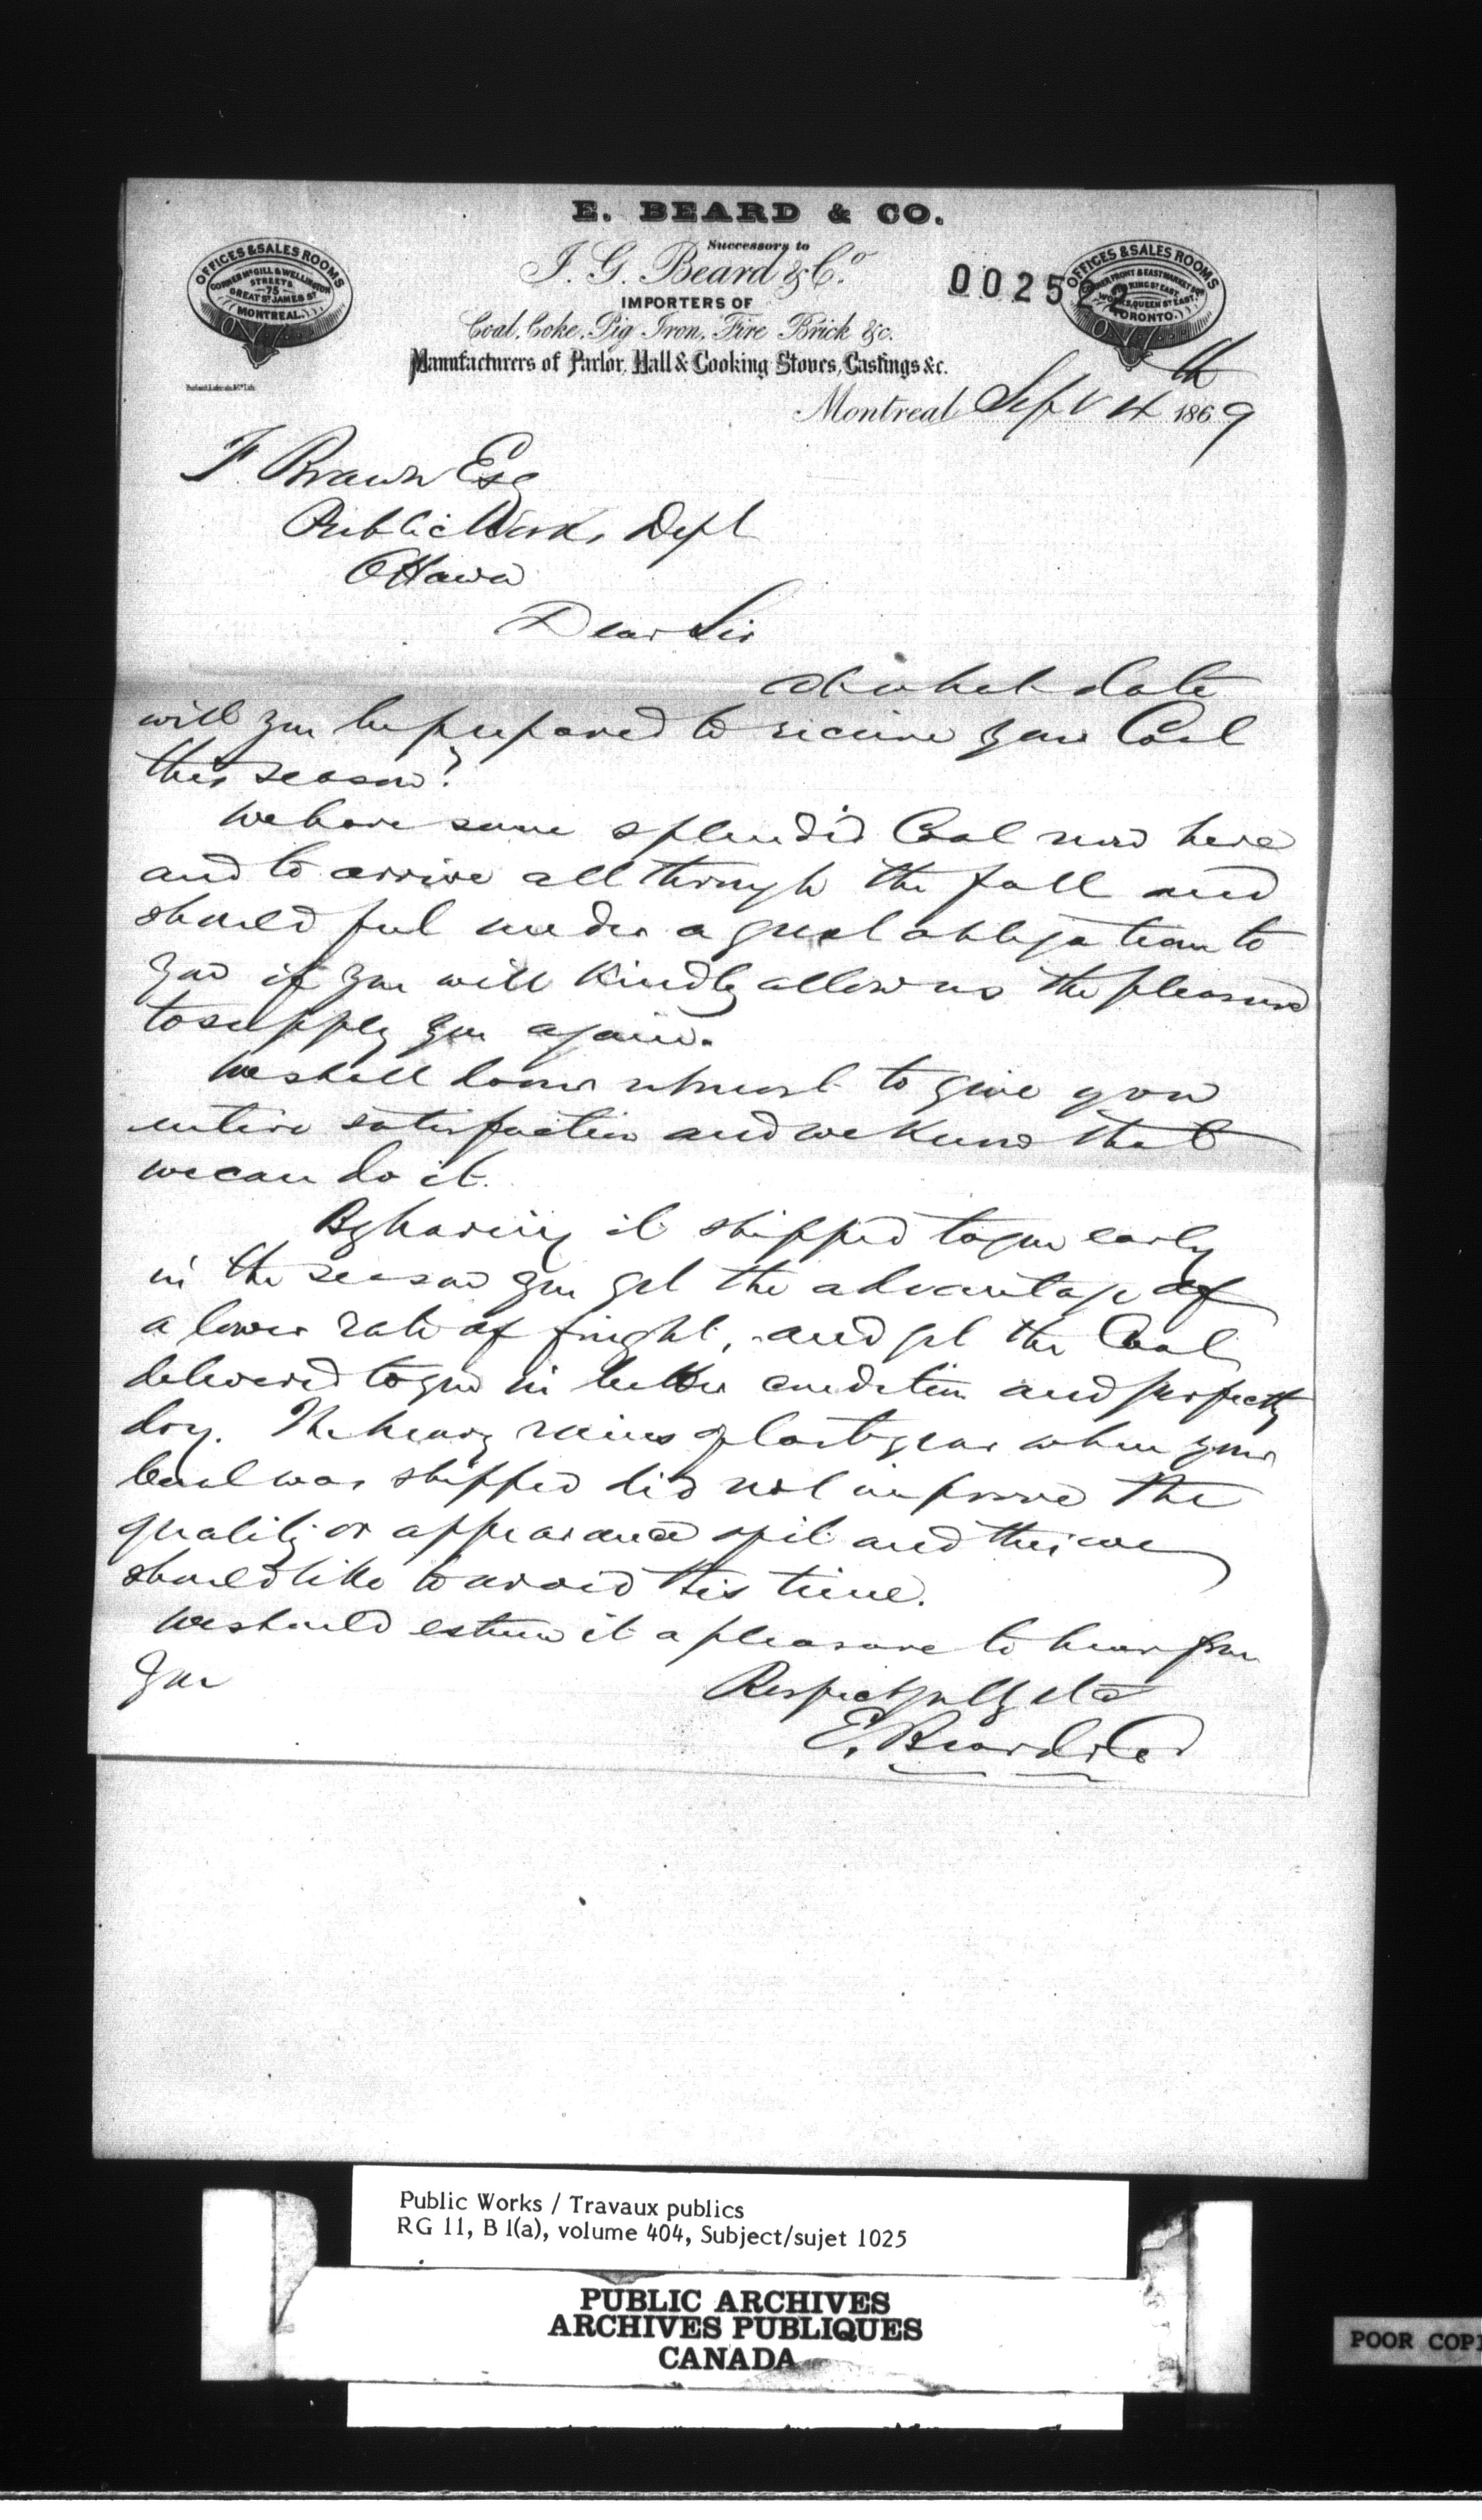 E. BEARD & CO.
Successors to
J. G. Beard & Co.
IMPORTERS OF
Coal, Coke, Pig Iron, Fire Brick &c.
Manufacturers of Parlor, Hall & Cooking Stoves, Castings &c.
OFFICES & SALES ROOMS
CORNER McGILL & WELLINGTON
STREETS
75
GREAT ST JAMES ST
MONTREAL.
002522
OFFICES & SALES ROOMS
FRONT & EAST MARKET
KING ST EAST
WORKS, QUEEN ST EAST
TORONTO.
Montreal Sept 4th 1869
F. Brawn Esq
Public Works Dept
Ottawa
Dear Sir
At what date
will you be prepared to receive your Coal
this season?
We have some splendid Coal now here
and to arrive all through the fall and
should feel under a great obligation to
you if you will kindly allow us the pleasure
to supply you again.
We shall do our utmost to give you
entire satisfaction and we know that
we can do it.
By having it shipped to you early
in the season you get the advantage of
a lower rate of freight, and get the Coal
delivered to you in better condition and perfectly
dry. The heavy rains of last year when your
Coal was shipped did not improve the
quality or appearance of it and this we
should like to avoid this time.
We should esteem it a pleasure to hear from
you
Respectfully
E. Beard & Co
Public Works / Travaux publics
RG 11, B 1(a), volume 404, Subject/sujet 1025
PUBLIC ARCHIVES
ARCHIVES PUBLIQUES
CANADA
POOR COP